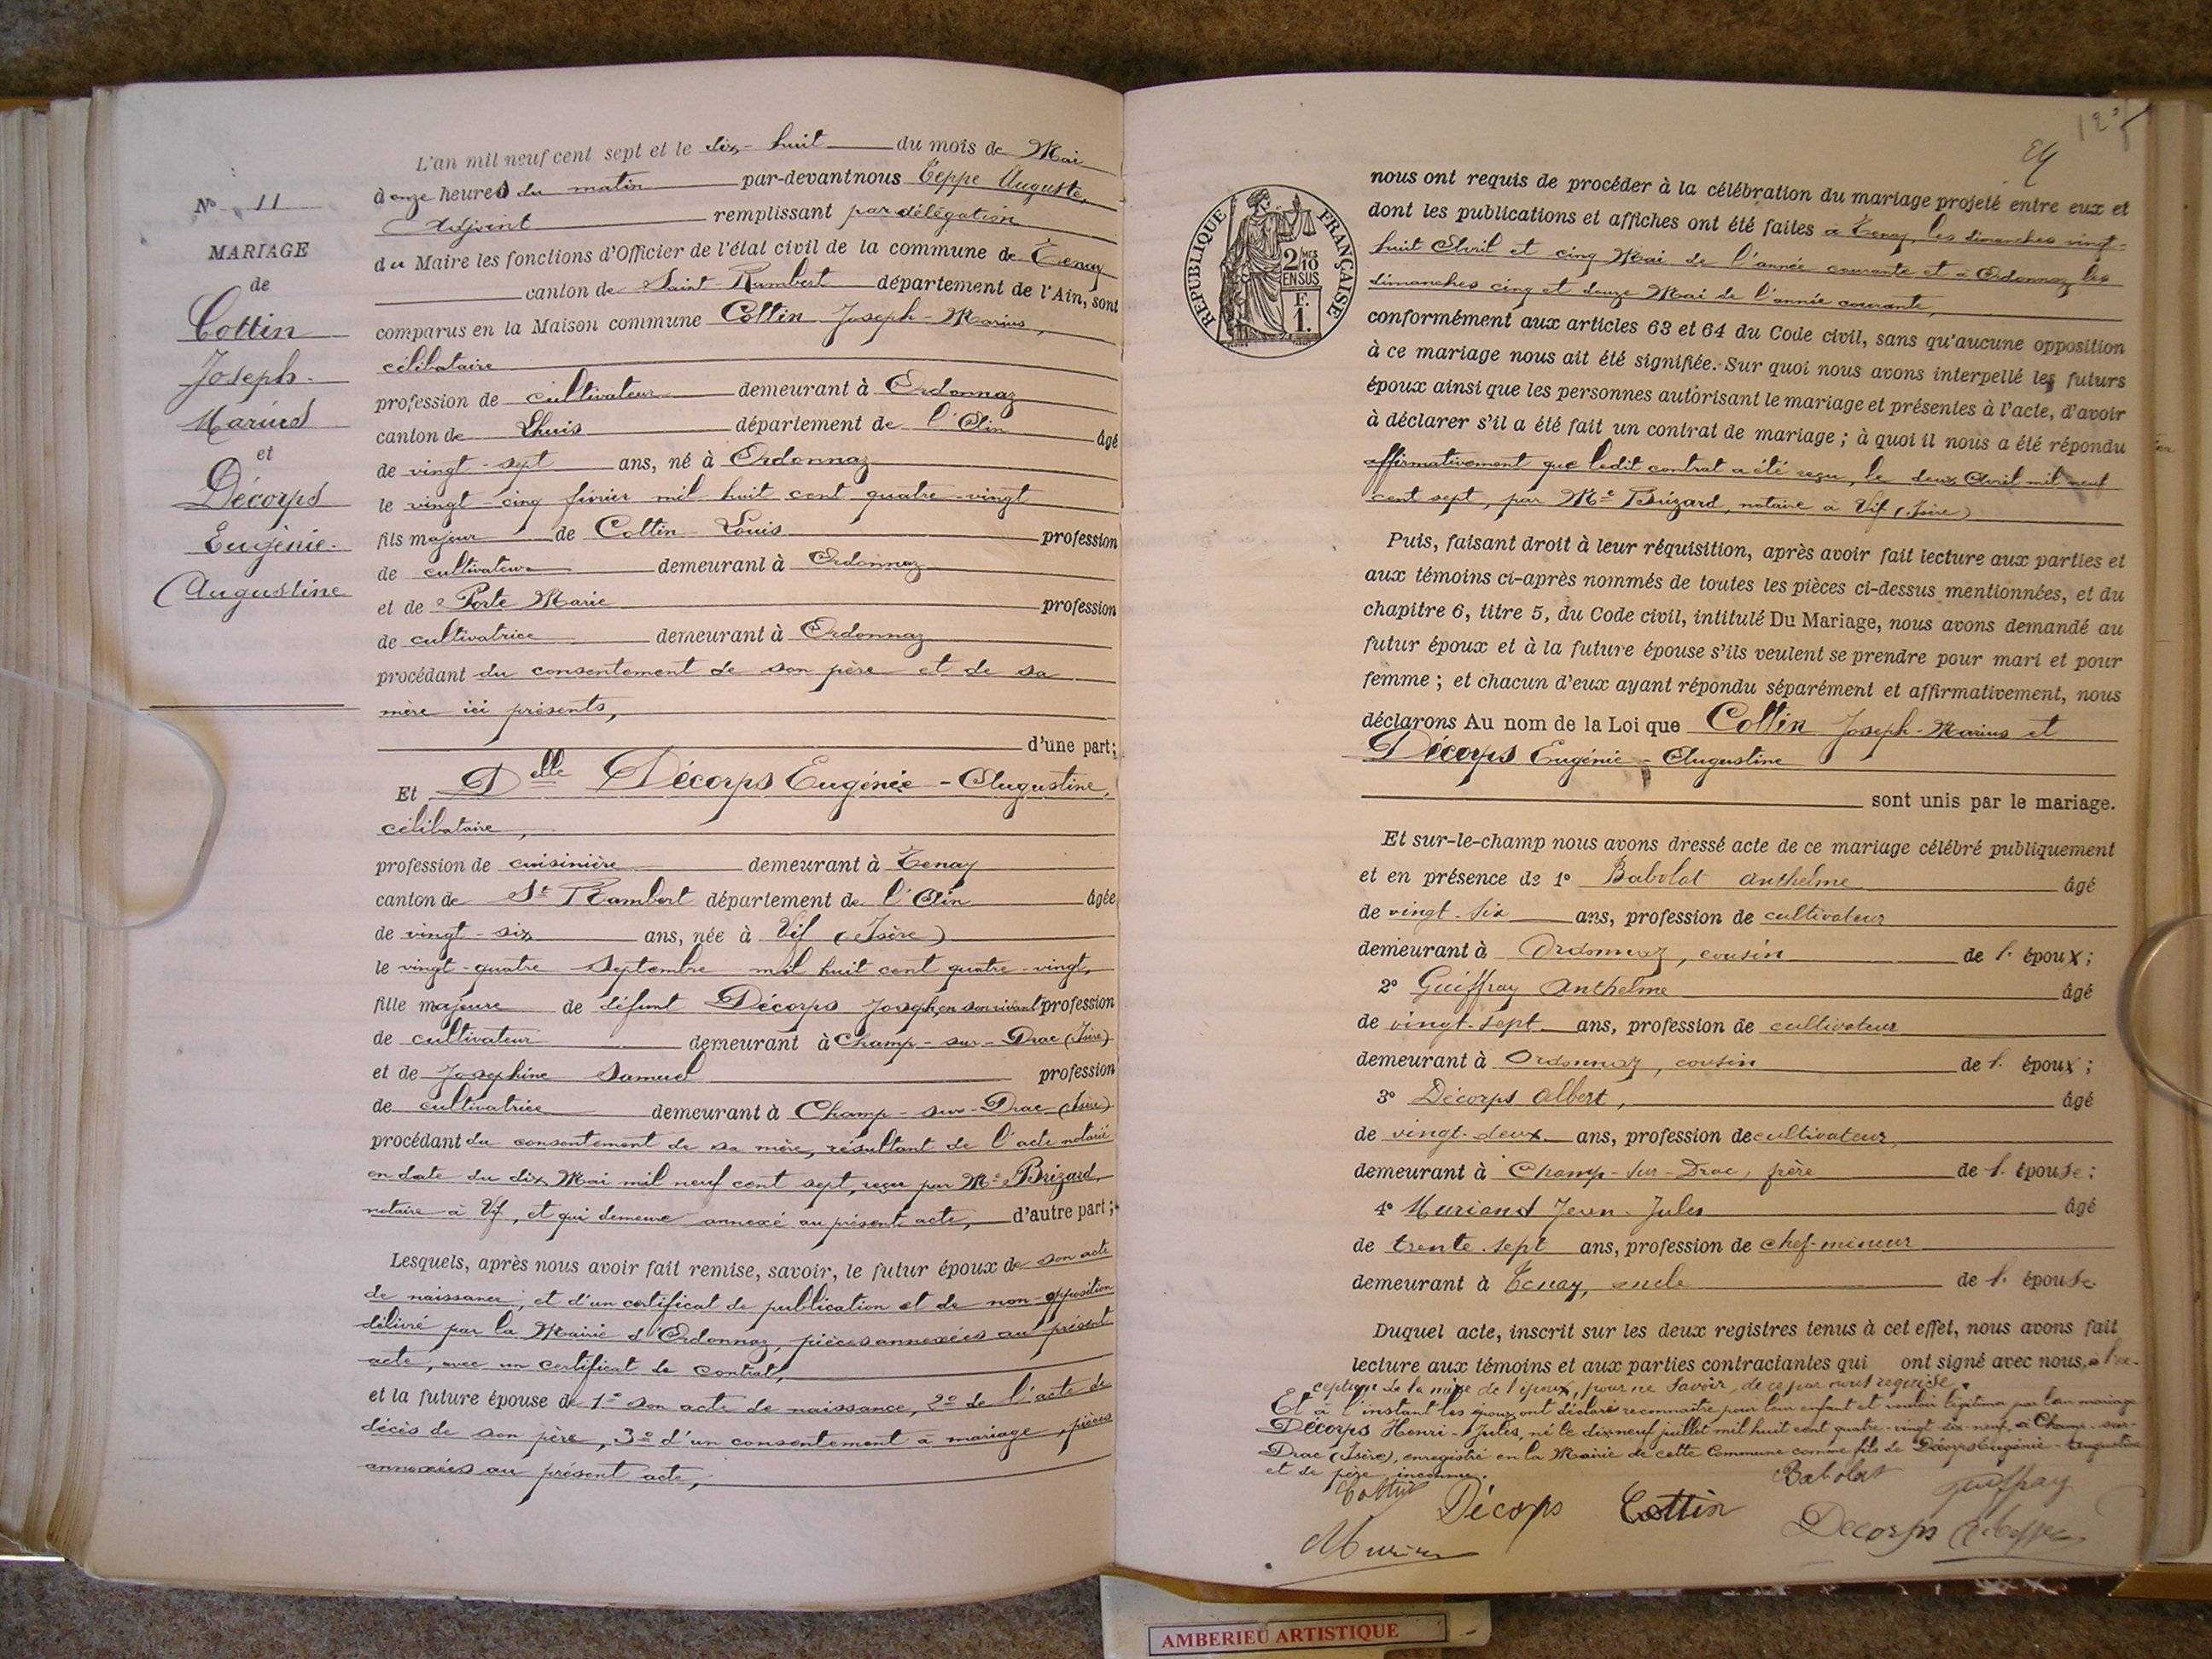 L'an mil neuf cent sept et le dix-huit du mois de Mai
à onze heures du matin par-devant nous Teppe Auguste,
Adjoint remplissant par délégation
du Maire les fonctions d'Officier de l'état civil de la commune de Tenay
canton de Saint-Rambert département de l'Ain, sont
comparus en la Maison commune Cottin Joseph-Marius,
célibataire
profession de cultivateur demeurant à Ordonnaz
canton de Lhuis département de l'Ain âgé
de vingt-sept ans, né à Ordonnaz
le vingt-cinq février mil huit cent quatre-vingt
fils majeur de Cottin Louis profession
de cultivateur demeurant à Ordonnaz
et de Porte Marie profession
de cultivatrice demeurant à Ordonnaz
procédant du consentement de son père et de sa
mère ici présents,
d'une part;
Et Delle Décorps Eugénie-Augustine,
célibataire,
profession de cuisinière demeurant à Tenay
canton de St Rambert département de l'Ain âgée
de vingt-six ans, née à Vif (Isère)
le vingt-quatre septembre mil huit cent quatre-vingt,
fille majeure de défunt Décorps Joseph, en son vivant profession
de cultivateur demeurant à Champ-sur-Drac (Isère)
et de Joséphine Samuel profession
de cultivatrice demeurant à Champ-sur-Drac (Isère)
procédant du consentement de sa mère, résultant de l'acte notarié
en date du dix Mai mil neuf cent sept, reçu par Me Brizard,
notaire à Vif, et qui demeure annexé au présent acte, d'autre part;
Lesquels, après nous avoir fait remise, savoir, le futur époux de son acte
de naissance, et d'un certificat de publication et de non-opposition
délivré par la Mairie d'Ordonnaz, pièces annexées au présent
acte, avec un certificat de contrat,
et la future épouse de 1° son acte de naissance, 2° de l'acte de
décès de son père, 3° d'un consentement à mariage, pièces
annexées au présent acte,
N° 11
MARIAGE
de
Cottin
Joseph-
Marius
et
Décorps
Eugénie-
Augustine
24
RÉPUBLIQUE FRANÇAISE
2/10
EN SUS
F.
1.
nous ont requis de procéder à la célébration du mariage projeté entre eux et
dont les publications et affiches ont été faites à Tenay, les dimanches vingt-
huit Avril et cinq Mai de l'année courante et à Ordonnaz les
dimanches cinq et douze Mai de l'année courante,
conformément aux articles 63 et 64 du Code civil, sans qu'aucune opposition
à ce mariage nous ait été signifiée. Sur quoi nous avons interpellé les futurs
époux ainsi que les personnes autorisant le mariage et présentes à l'acte, d'avoir
à déclarer s'il a été fait un contrat de mariage; à quoi il nous a été répondu
affirmativement que ledit contrat a été reçu, le deux Avril mil neuf
cent sept, par Me Brizard, notaire à Vif (Isère)
Puis, faisant droit à leur réquisition, après avoir fait lecture aux parties et
aux témoins ci-après nommés de toutes les pièces ci-dessus mentionnées, et du
chapitre 6, titre 5, du Code civil, intitulé Du Mariage, nous avons demandé au
futur époux et à la future épouse s'ils veulent se prendre pour mari et pour
femme; et chacun d'eux ayant répondu séparément et affirmativement, nous
déclarons Au nom de la Loi que Cottin Joseph-Marius et
Décorps Eugénie-Augustine
sont unis par le mariage.
Et sur-le-champ nous avons dressé acte de ce mariage célébré publiquement
et en présence de 1° Babolat Anthelme âgé
de vingt-six ans, profession de cultivateur
demeurant à Ordonnaz, cousin de l'époux;
2° Guiffray Anthelme âgé
de vingt-sept ans, profession de cultivateur
demeurant à Ordonnaz, cousin de l'époux;
3° Décorps Albert, âgé
de vingt-deux ans, profession de cultivateur,
demeurant à Champ-sur-Drac, frère de l'épouse;
4° Jean-Jules âgé
de trente-sept ans, profession de chef-mineur
demeurant à Tenay, oncle de l'épouse.
Duquel acte, inscrit sur les deux registres tenus à cet effet, nous avons fait
lecture aux témoins et aux parties contractantes qui ont signé avec nous, à l'ex-
ception de la mère de l'époux, pour ne savoir, de ce par nous requise.
Et à l'instant les époux ont déclaré reconnaître pour leur enfant et vouloir légitimer par leur mariage
Décorps Henri-Jules, né le dix neuf juillet mil huit cent quatre-vingt-dix-neuf, à Champ-sur-
Drac (Isère), enregistré en la Mairie de cette Commune comme fils de Décorps Eugénie-Augustine
et de père inconnu.
Cottin Décorps Cottin Babolat Guiffray
Decorps
AMBERIEU ARTISTIQUE